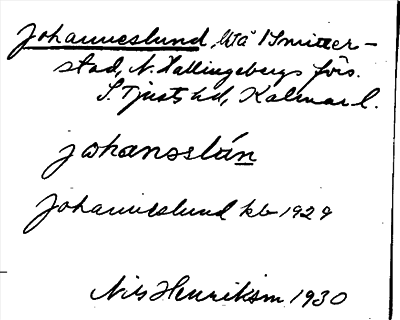 Johanneslund, lht å 1 Smitter-
stad, N. Hallingebergs förs.
S. Tjusts hd, Kalmar l.
johanoslán
Johanneslund kb 1929
Nils Henrikson 1930